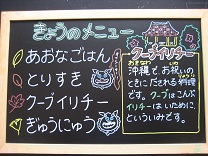 きょうのメニュー
あおなごはん
とりすき
クーブイリチー
ぎゅうにゅう
クーブイリチー
おきなわ いわ
沖縄で、お祝いの
ときにだされる料理
です。クーブはこんぶ
イリチーは、いために、
といういみです。